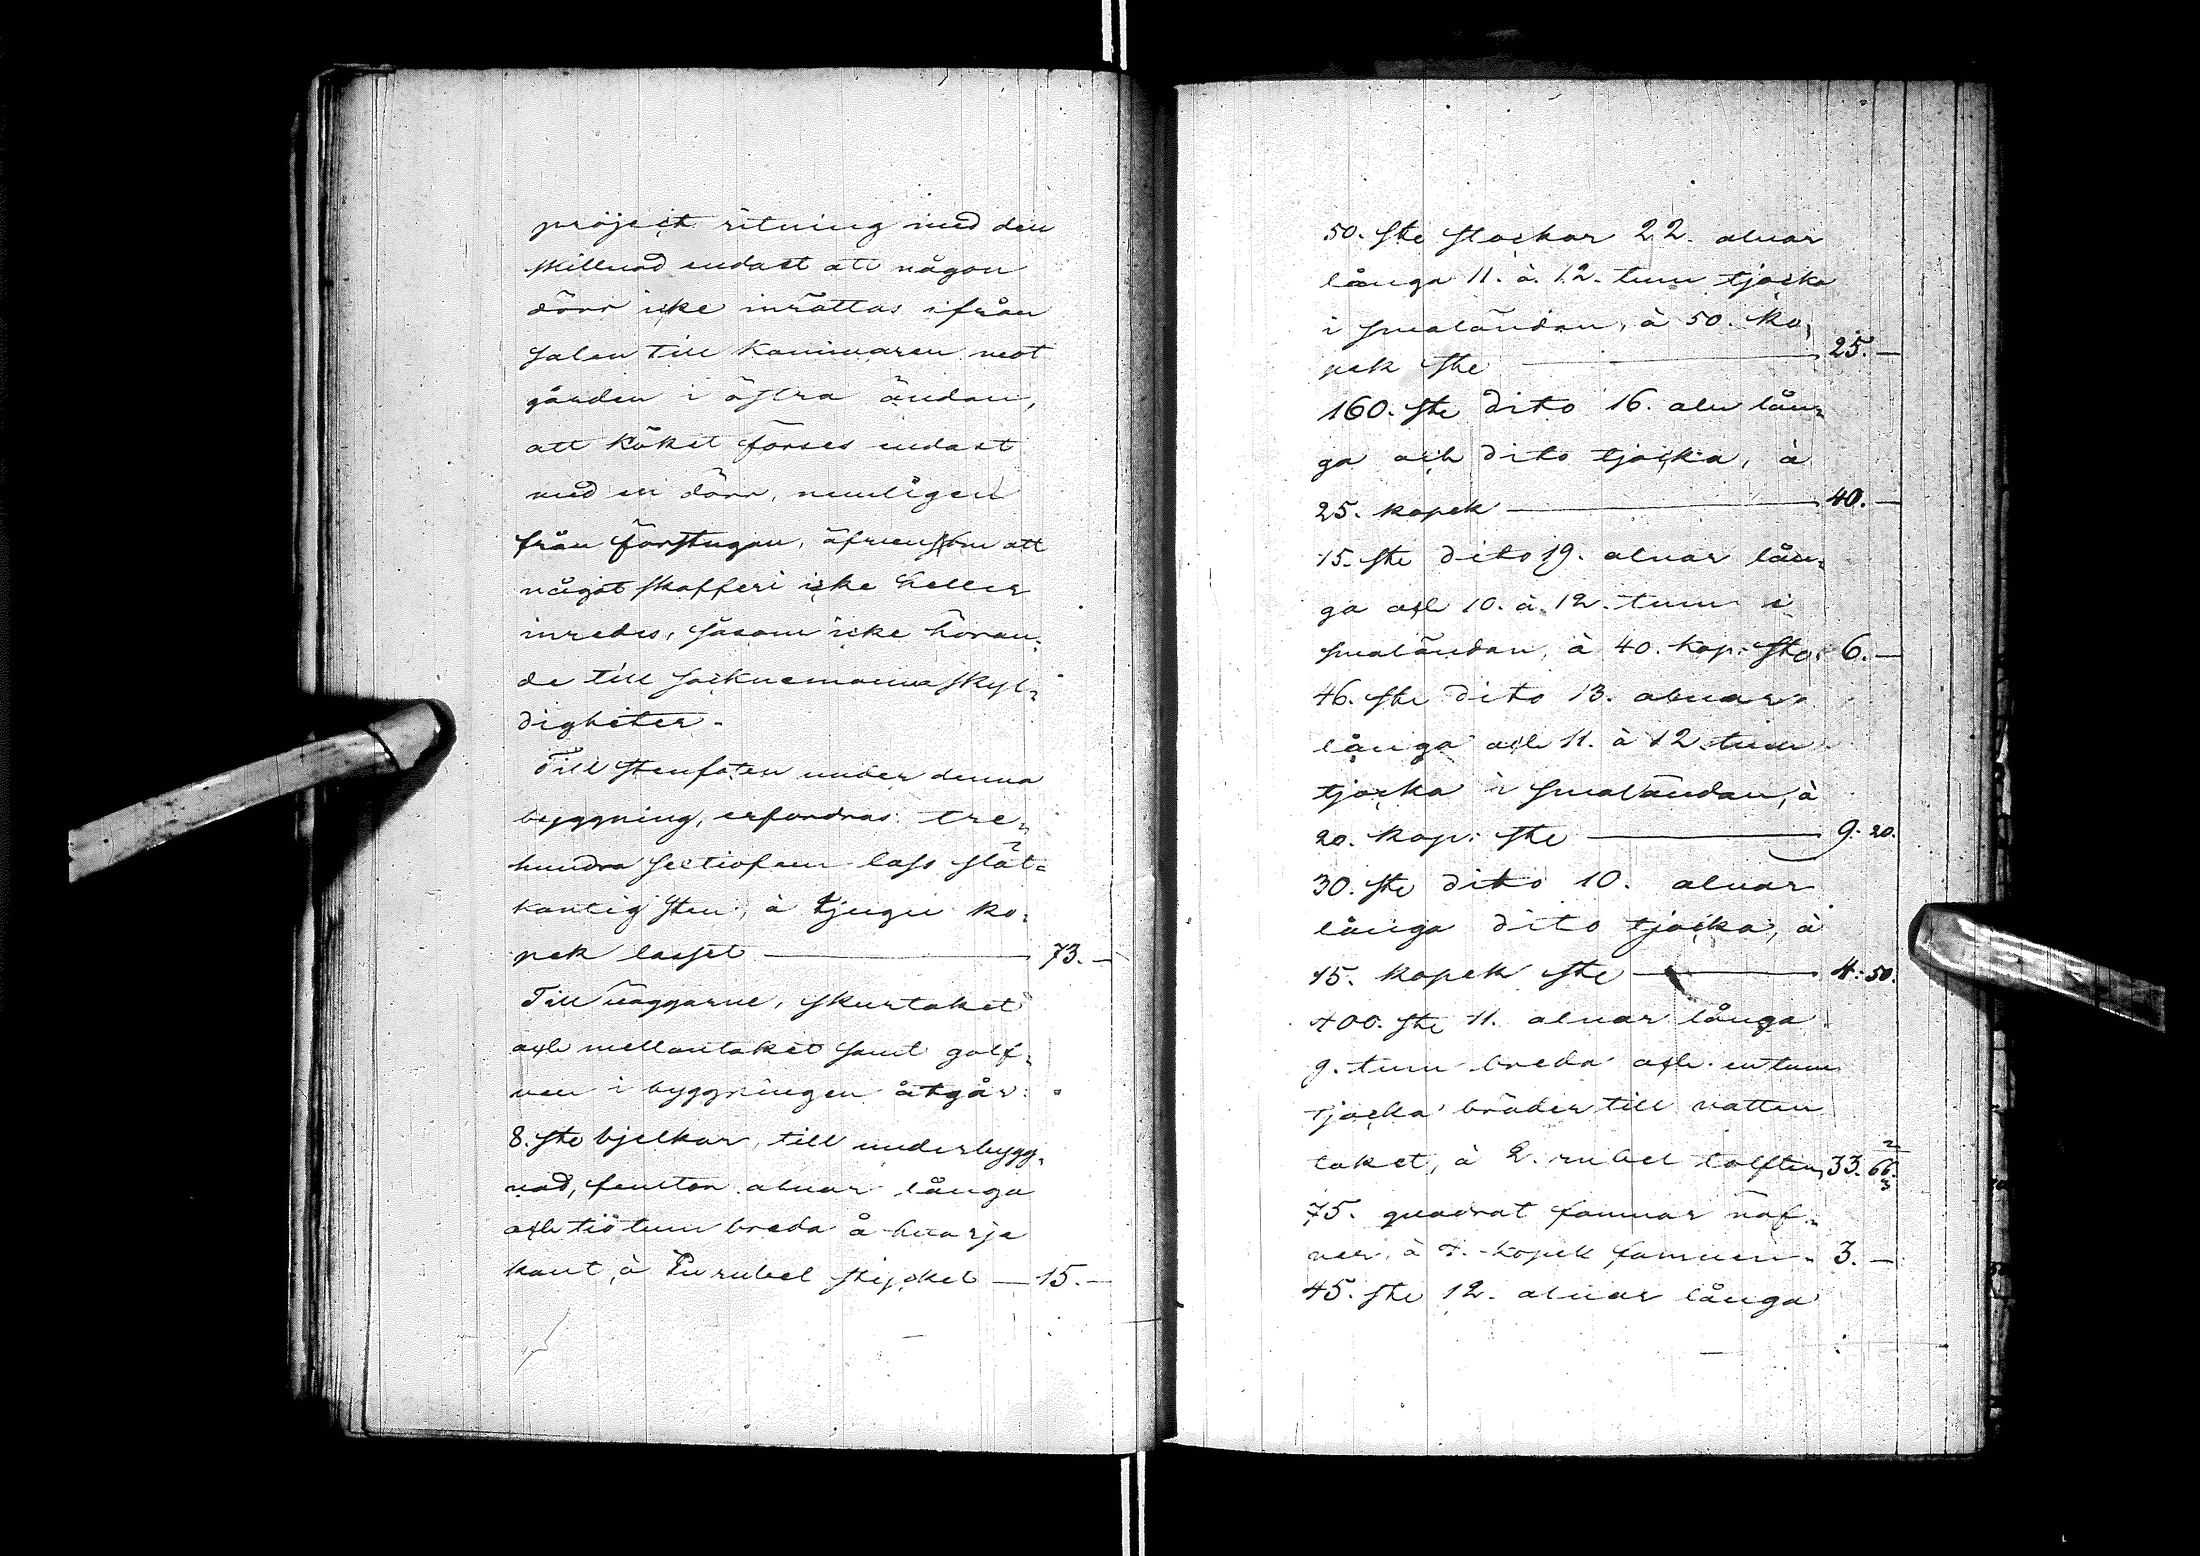 project ritning med den
skillnad endast att någon
dörr icke inrättas ifrån
salen till kammaren mot
gården i östra ändan,
att köket förses endast
med en dörr, nemligen
från förstugan, äfvensom att
något skafferi icke heller
inredes, såsom icke höran-
de till socknemanna skyl-
digheter.
Till stenfoten under denna
byggning, erfordras tre-
hundra sextiofem lass slät-
kantig sten, à tjugu ko-
pek lasset — 73. —
Till väggarne, skurtaket
och mellantaket samt golf-
ven i byggningen åtgår:
8. ste bjelkar, till underbygg-
nad, femton alnar långa
och tio tum breda å hvarje
kant, à rubel stycket — 15. —
50. ste stockar 22. alnar
långa 11. à 12. tum tjocka
i smaländan, à 50. ko-
pek ste — 25. —
160. ste dito 16. aln lån-
ga och dito tjocka, à
25. kopek — 40. —
15. ste dito 19. alnar lån-
ga och 10. à 12. tum i
smaländan, à 40. kop: ste 6. —
46. ste dito 13. alnar
långa och 11. à 12 tum
tjocka i smaländan, à
20. kop: ste — 9. 20.
30. ste dito 10. alnar
långa dito tjocka, à
15. kopek ste — 4. 50.
400. ste 11. alnar långa
9. tum breda och en tum
tjocka bräder till vatten
taket, à rubel tolften, 33. 66. 2/3
75. quadrat famnar näf-
ver, à 4. kopek famnen 3. —
45. ste 12. alnar långa